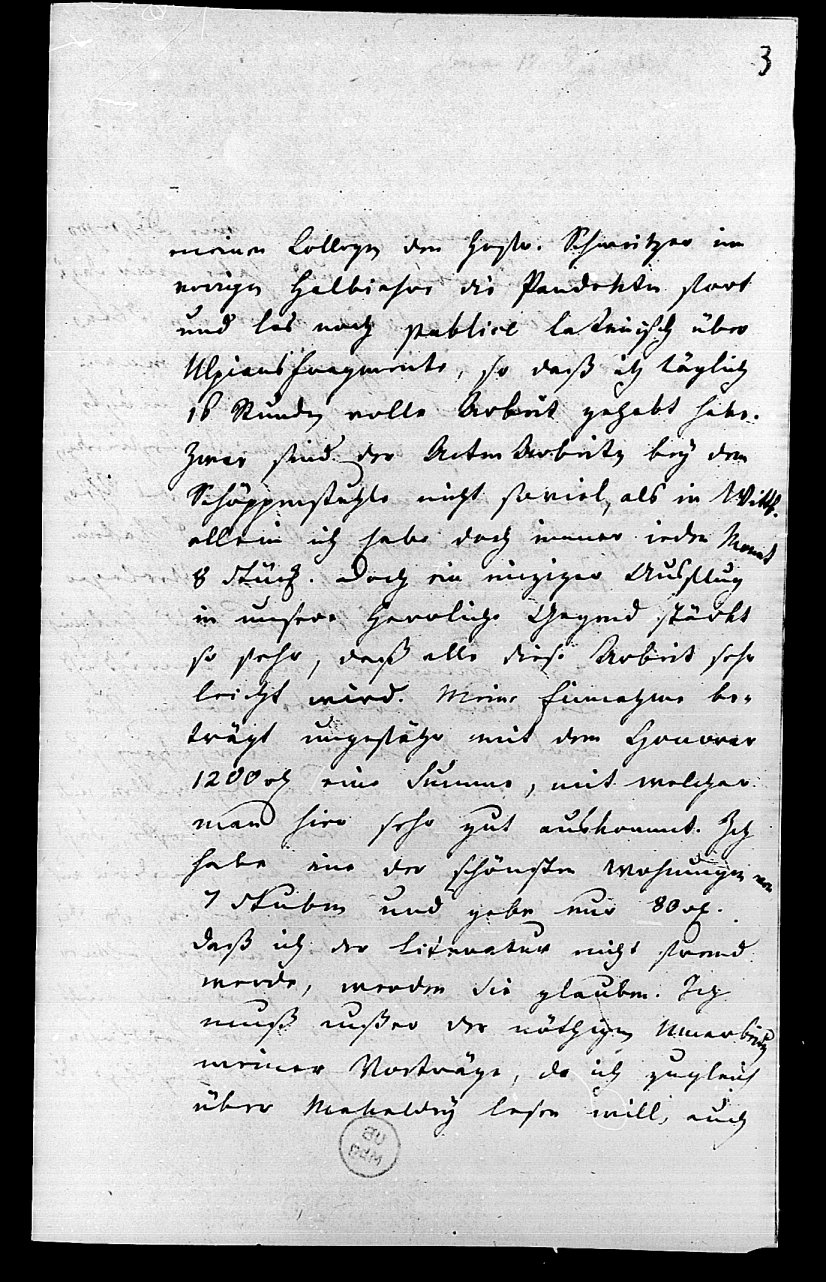 3
meines Collegen des Hofr. Schweitzer im
vorigen Halbjahre die Pandekten fort
und las noch publice lateinisch über
Ulpians fragmente, so daß ich täglich
16 Stunden volle Arbeit gehabt habe.
Zwar sind der Acten Arbeiten bey dem
Schöppenstuhle nicht soviel, als in Wittb.
allein ich habe doch immer jeden Monat
8 Stück. Doch ein einziger Ausflug
in unsere herrliche Gegend stärkt
so sehr, daß alle diese Arbeit sehr
leicht wird. Meine Einnahme be-
trägt ungefähr mit dem Honorar
1200 rh eine Summe, mit welcher
man hier sehr gut auskommt. Ich
habe eine der schönsten Wohnungen von
7 Stuben und gebe nur 80 rh.
Daß ich der Literatur nicht fremd
werde, werden Sie glauben. Ich
muß außer der nöthigen Umarbeitung
meiner Vorträge, da ich zugleich
über Makeldey lesen will, auch